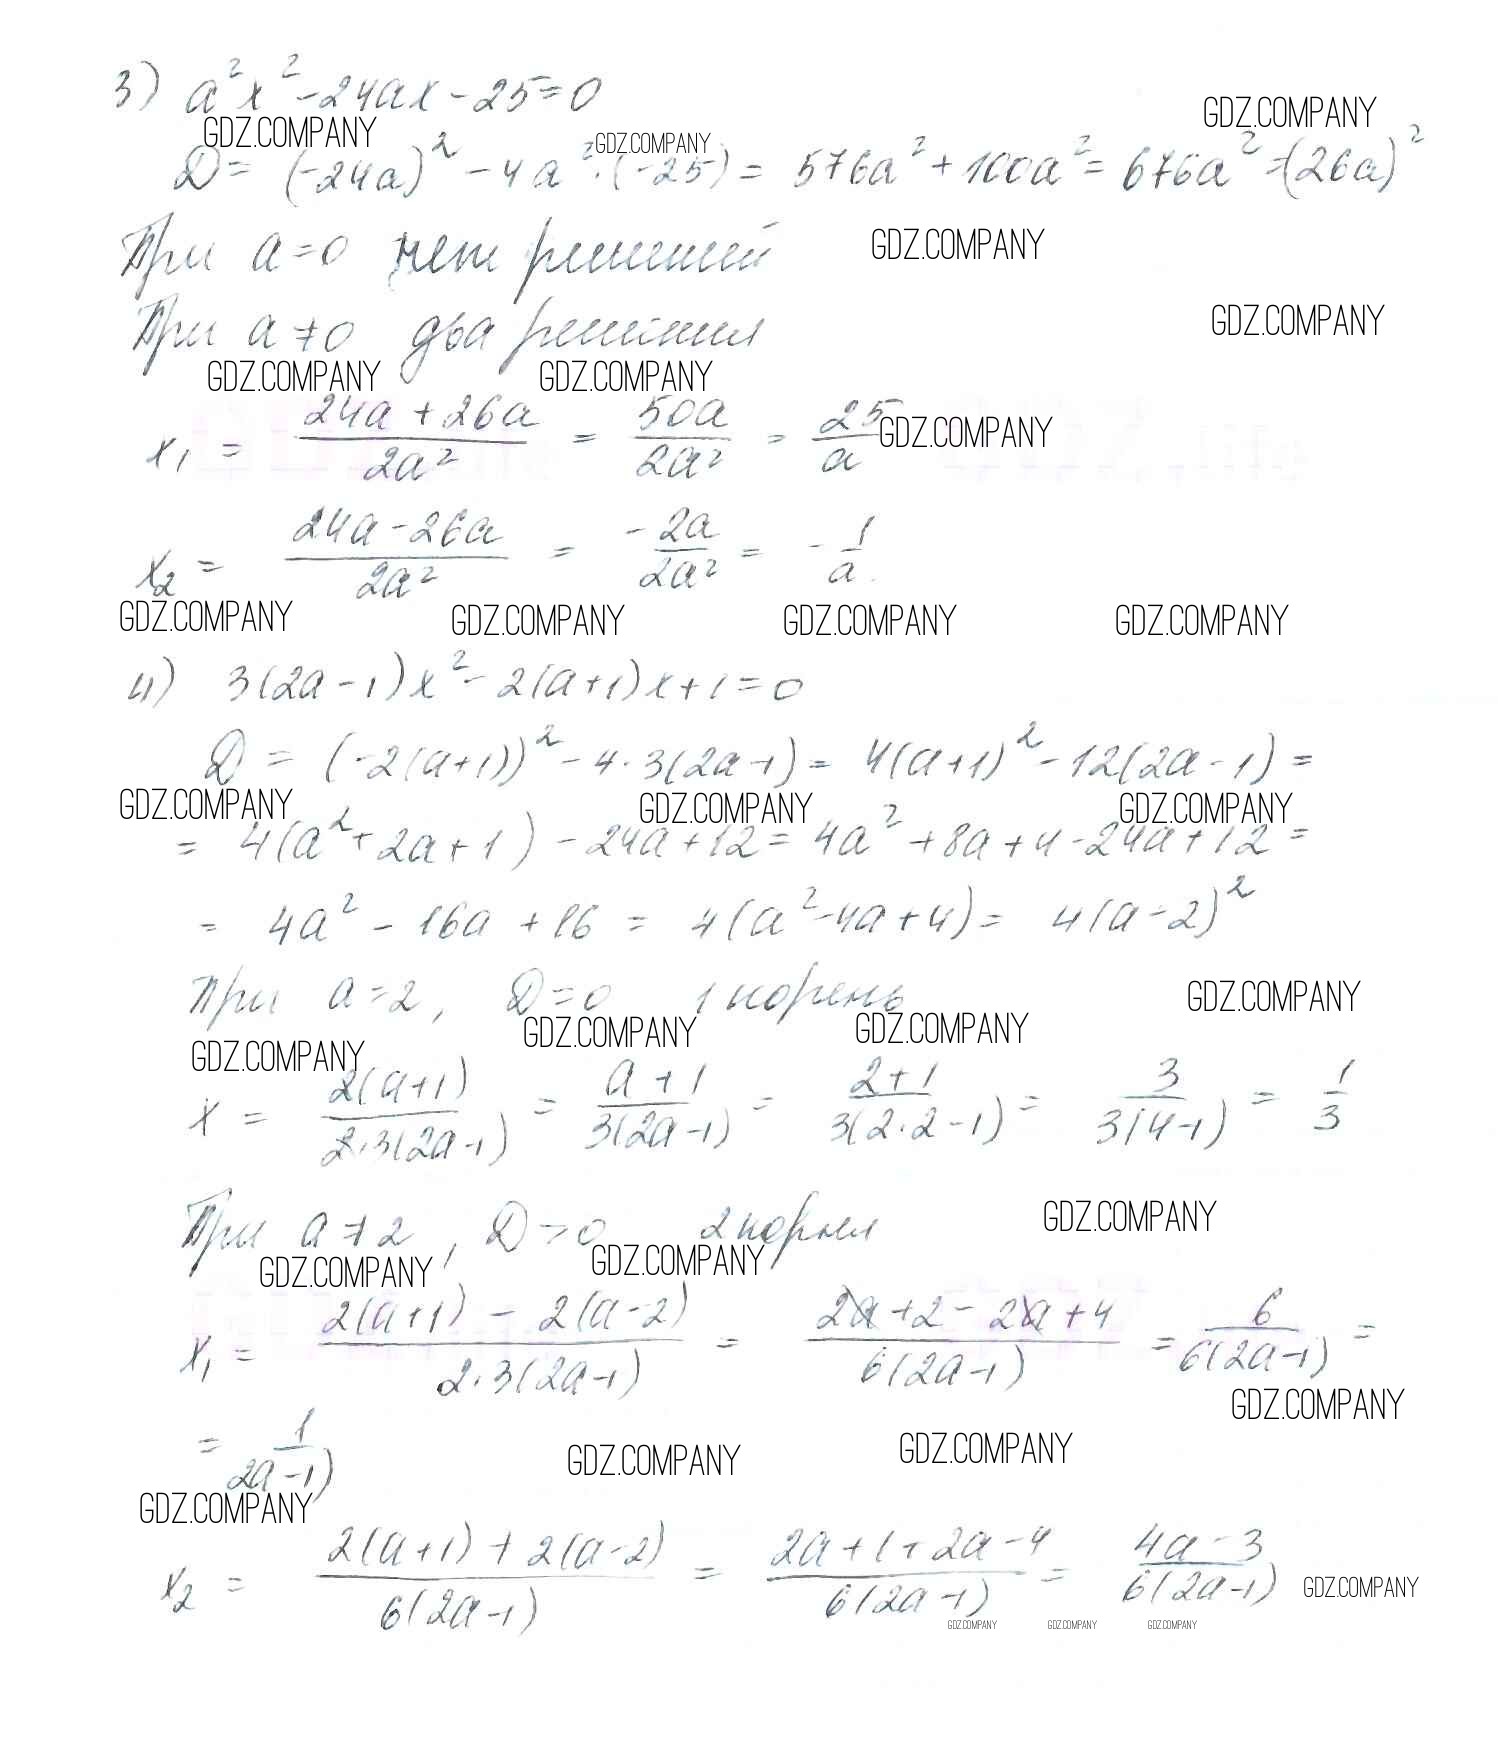 3) a²x² - 24ax - 25 = 0
GDZ.COMPANY GDZ.COMPANY GDZ.COMPANY
D = (-24a)² - 4a²·(-25) = 576a² + 100a² = 676a² = (26a)²
При a = 0 нет решений GDZ.COMPANY
При a ≠ 0 два решения GDZ.COMPANY
GDZ.COMPANY GDZ.COMPANY
x₁ = (24a + 26a)/(2a²) = 50a/(2a²) = 25/a GDZ.COMPANY
x₂ = (24a - 26a)/(2a²) = -2a/(2a²) = -1/a.
GDZ.COMPANY GDZ.COMPANY GDZ.COMPANY GDZ.COMPANY
4) 3(2a - 1)x² - 2(a + 1)x + 1 = 0
D = (-2(a+1))² - 4·3(2a-1) = 4(a+1)² - 12(2a - 1) =
GDZ.COMPANY GDZ.COMPANY GDZ.COMPANY
= 4(a² + 2a + 1) - 24a + 12 = 4a² + 8a + 4 - 24a + 12 =
= 4a² - 16a + 16 = 4(a² - 4a + 4) = 4(a - 2)²
При a = 2, D = 0 1 корень GDZ.COMPANY
GDZ.COMPANY GDZ.COMPANY GDZ.COMPANY
x = 2(a+1)/(2·3(2a-1)) = (a + 1)/(3(2a-1)) = (2+1)/(3(2·2-1)) = 3/(3(4-1)) = 1/3
При a ≠ 2, D > 0 2 корня GDZ.COMPANY
GDZ.COMPANY GDZ.COMPANY
x₁ = (2(a+1) - 2(a-2))/(2·3(2a-1)) = (2a + 2 - 2a + 4)/(6(2a-1)) = 6/(6(2a-1)) =
GDZ.COMPANY
= 1/(2a-1) GDZ.COMPANY GDZ.COMPANY
GDZ.COMPANY
x₂ = (2(a+1) + 2(a-2))/(6(2a-1)) = (2a + 1 + 2a - 4)/(6(2a-1)) = (4a - 3)/(6(2a-1)) GDZ.COMPANY
GDZ.COMPANY GDZ.COMPANY GDZ.COMPANY